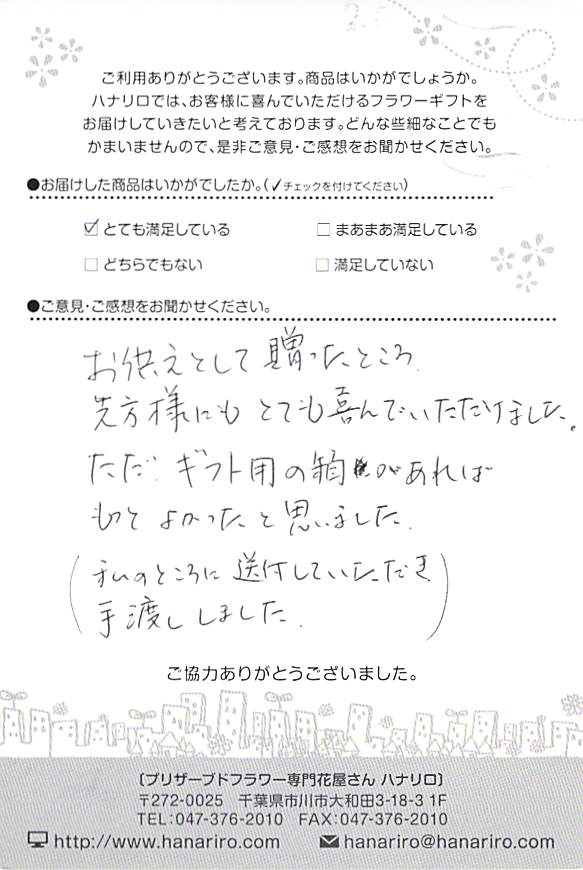 ご利用ありがとうございます。商品はいかがでしょうか。
ハナリロでは、お客様に喜んでいただけるフラワーギフトを
お届けしていきたいと考えております。どんな些細なことでも
かまいませんので、是非ご意見・ご感想をお聞かせください。
●お届けした商品はいかがでしたか。(✓チェックを付けてください)
☑ とても満足している □ まあまあ満足している
□ どちらでもない □ 満足していない
●ご意見・ご感想をお聞かせください。
お供えとして贈ったところ
先方様にもとても喜んでいただけました。
ただ、ギフト用の箱があれば
もっとよかったと思いました。
(私のところに送付していただき
手渡ししました。)
ご協力ありがとうございました。
〔プリザーブドフラワー専門花屋さん ハナリロ〕
〒272-0025 千葉県市川市大和田3-18-3 1F
TEL:047-376-2010 FAX:047-376-2010
http://www.hanariro.com hanariro@hanariro.com